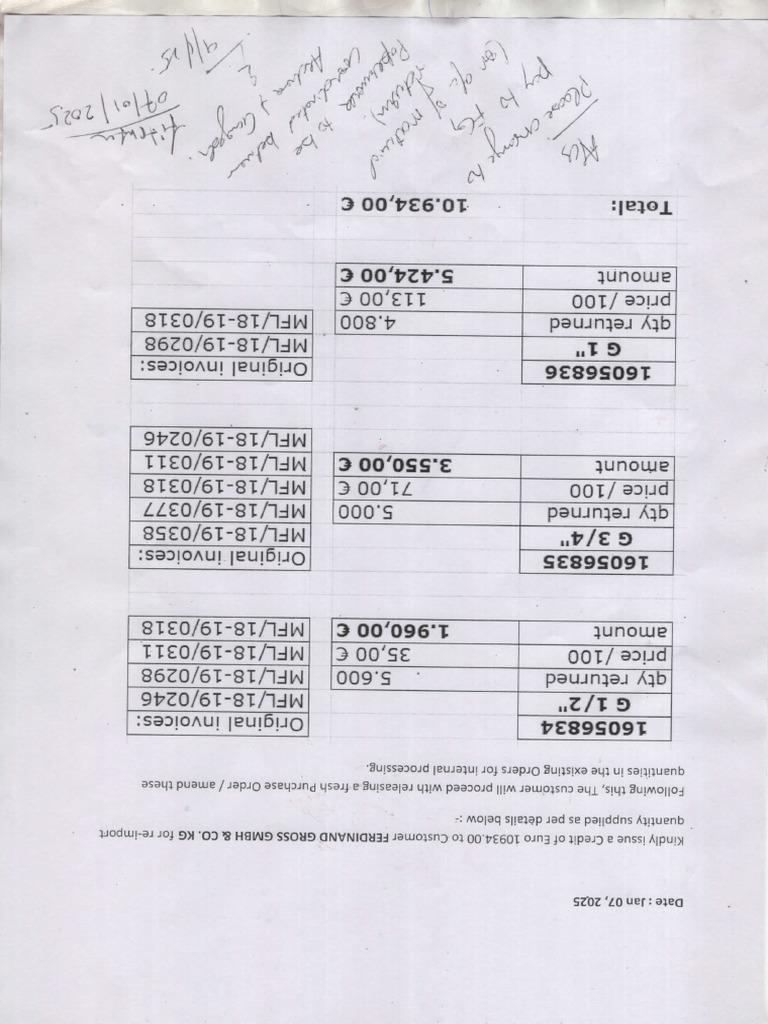 Date : Jan 07, 2025
Kindly issue a Credit of Euro 10934.00 to Customer FERDINAND GROSS GMBH & CO. KG for re-import
quantity supplied as per details below :-
Following this, The customer will proceed with releasing a fresh Purchase Order / amend these
quantities in the existing Orders for internal processing.
16056834 Original invoices:
G 1/2" MFL/18-19/0246
qty returned 5.600 MFL/18-19/0298
price /100 35,00 € MFL/18-19/0311
amount 1.960,00 € MFL/18-19/0318
16056835 Original invoices:
G 3/4" MFL/18-19/0358
qty returned 5.000 MFL/18-19/0377
price /100 71,00 € MFL/18-19/0318
amount 3.550,00 € MFL/18-19/0311
MFL/18-19/0246
16056836 Original invoices:
G 1" MFL/18-19/0298
qty returned 4.800 MFL/18-19/0318
price /100 113,00 €
amount 5.424,00 €
Total: 10.934,00 €
07/01/2025
A/cs
Please arrange to
pay to FG
of material
to be
between
9/1/25